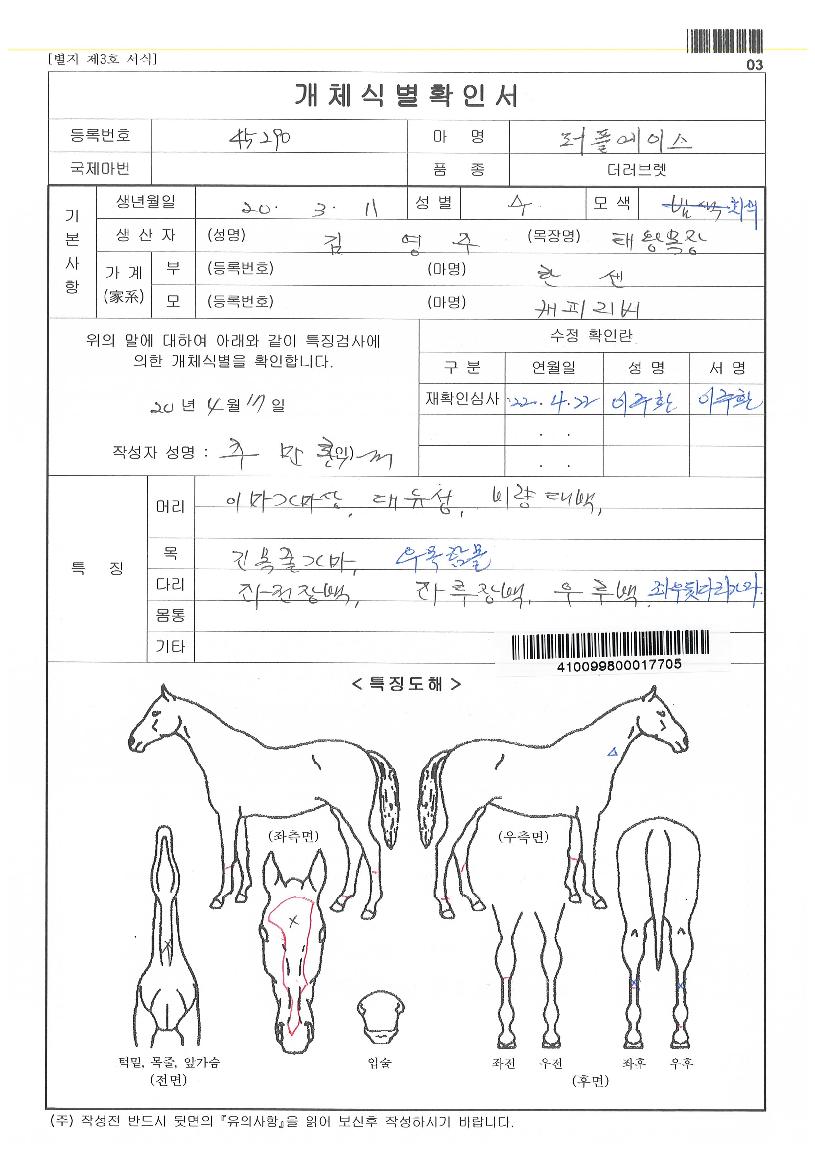 [별지 제3호 서식]
03
개체식별확인서
등록번호 45290 마 명 러플에이스
국제마번 품 종 더러브렛
기본사항
생년월일 20. 3. 11 성 별 수 모 색 회색
생 산 자 (성명) 김 영 주 (목장명) 태왕목장
가 계 (家系) 부 (등록번호) (마명) 한 센
모 (등록번호) (마명) 해피리버
위의 말에 대하여 아래와 같이 특징검사에
의한 개체식별을 확인합니다.
20 년 4 월 17 일
작성자 성명 : 주 만 (인)
수정 확인란
구 분 연월일 성 명 서 명
재확인심사 '22. 4. 22 이주환 이주환
. .
. .
특 징
머리 이마가마상, 대유성, 비량대백,
목 긴목줄가마, 우목찔몰
다리 좌전장백, 좌후장백, 우후백, 좌우뒷다리가마
몸통
기타
410099800017705
< 특징도해 >
(좌측면)
(우측면)
턱밑, 목줄, 앞가슴
(전면)
입술
좌전 우전 좌후 우후
(후면)
(주) 작성전 반드시 뒷면의 『유의사항』을 읽어 보신후 작성하시기 바랍니다.